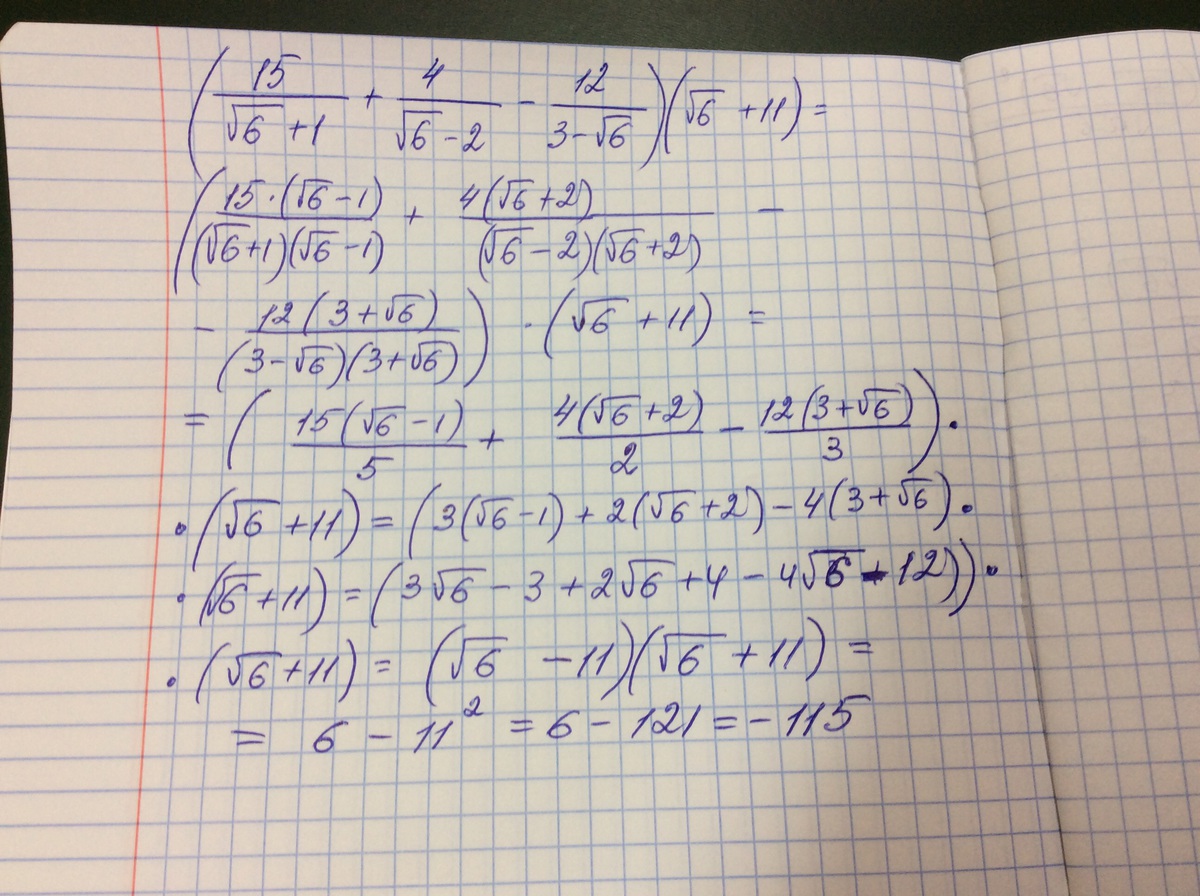 (15/(√6 + 1) + 4/(√6 - 2) - 12/(3 - √6))(√6 + 11) =
((15·(√6 - 1))/((√6 + 1)(√6 - 1)) + (4(√6 + 2))/((√6 - 2)(√6 + 2)) -
- (12(3 + √6))/((3 - √6)(3 + √6))) · (√6 + 11) =
= ((15(√6 - 1))/5 + (4(√6 + 2))/2 - (12(3 + √6))/3) ·
· (√6 + 11) = (3(√6 - 1) + 2(√6 + 2) - 4(3 + √6) ·
· (√6 + 11) = (3√6 - 3 + 2√6 + 4 - 4√6 - 12)) ·
· (√6 + 11) = (√6 - 11)(√6 + 11) =
= 6 - 11² = 6 - 121 = - 115